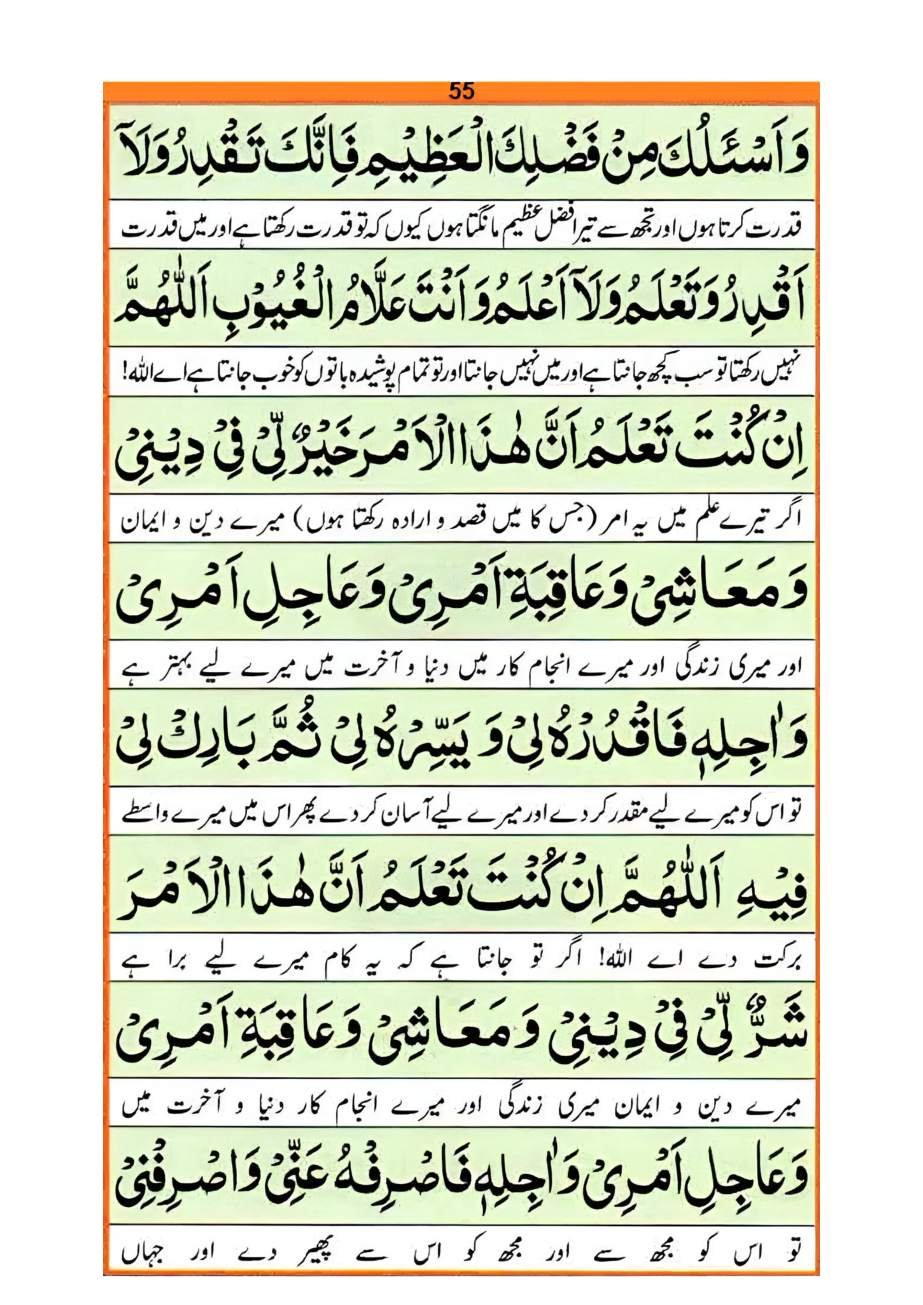 55
وَاَسْئَلُكَ مِنْ فَضْلِكَ الْعَظِيْمِ فَاِنَّكَ تَقْدِرُ وَلَآ
قدرت کرتا ہوں اور تجھ سے تیرا فضل عظیم مانگتا ہوں کیوں کہ تو قدرت رکھتا ہے اور میں قدرت
اَقْدِرُ وَتَعْلَمُ وَلَآ اَعْلَمُ وَاَنْتَ عَلَّامُ الْغُيُوْبِ اَللّٰهُمَّ
نہیں رکھتا تو سب کچھ جانتا ہے اور میں نہیں جانتا اور تو تمام پوشیدہ باتوں کو خوب جانتا ہے اے اللہ!
اِنْ كُنْتَ تَعْلَمُ اَنَّ هٰذَا الْاَمْرَ خَيْرٌ لِّيْ فِيْ دِيْنِيْ
اگر تیرے علم میں یہ امر (جس کا میں قصد و ارادہ رکھتا ہوں) میرے دین و ایمان
وَمَعَاشِيْ وَعَاقِبَةِ اَمْرِيْ وَعَاجِلِ اَمْرِيْ
اور میری زندگی اور میرے انجام کار میں دنیا و آخرت میں میرے لیے بہتر ہے
وَاٰجِلِهٖ فَاقْدُرْهُ لِيْ وَيَسِّرْهُ لِيْ ثُمَّ بَارِكْ لِيْ
تو اس کو میرے لیے مقدر کر دے اور میرے لیے آسان کر دے پھر اس میں میرے واسطے
فِيْهِ اَللّٰهُمَّ اِنْ كُنْتَ تَعْلَمُ اَنَّ هٰذَا الْاَمْرَ
برکت دے اے اللہ! اگر تو جانتا ہے کہ یہ کام میرے لیے برا ہے
شَرٌّ لِّيْ فِيْ دِيْنِيْ وَمَعَاشِيْ وَعَاقِبَةِ اَمْرِيْ
میرے دین و ایمان میری زندگی اور میرے انجام کار دنیا و آخرت میں
وَعَاجِلِ اَمْرِيْ وَاٰجِلِهٖ فَاصْرِفْهُ عَنِّيْ وَاصْرِفْنِيْ
تو اس کو مجھ سے اور مجھ کو اس سے پھیر دے اور جہاں